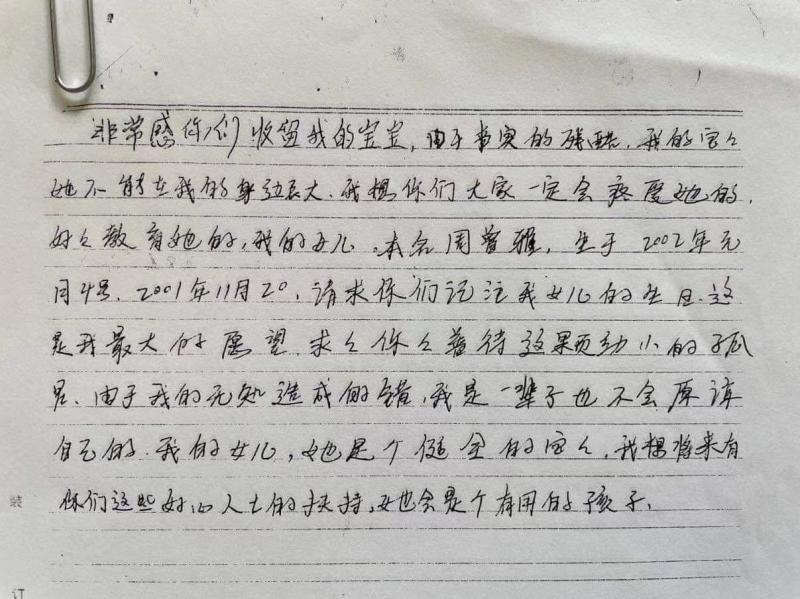 非常感你们收留我的宝宝，由于事实的残酷，我的宝々
她不能在我的身边长大。我想你们大家一定会疼爱她的，
好々教育她的，我的女儿，本名周曾雅，生于2002年元
月4号，2001年11月20，请求你们记注我女儿的生日，这
是我最大的愿望，求々你々善待这颗幼小的孤
男，由于我的无知造成的错，我是一辈子也不会原谅
自己的，我的女儿，她是个健全的宝々，我想将来有
你们这些好心人士的扶持，她也会是个有用的孩子，
装
订